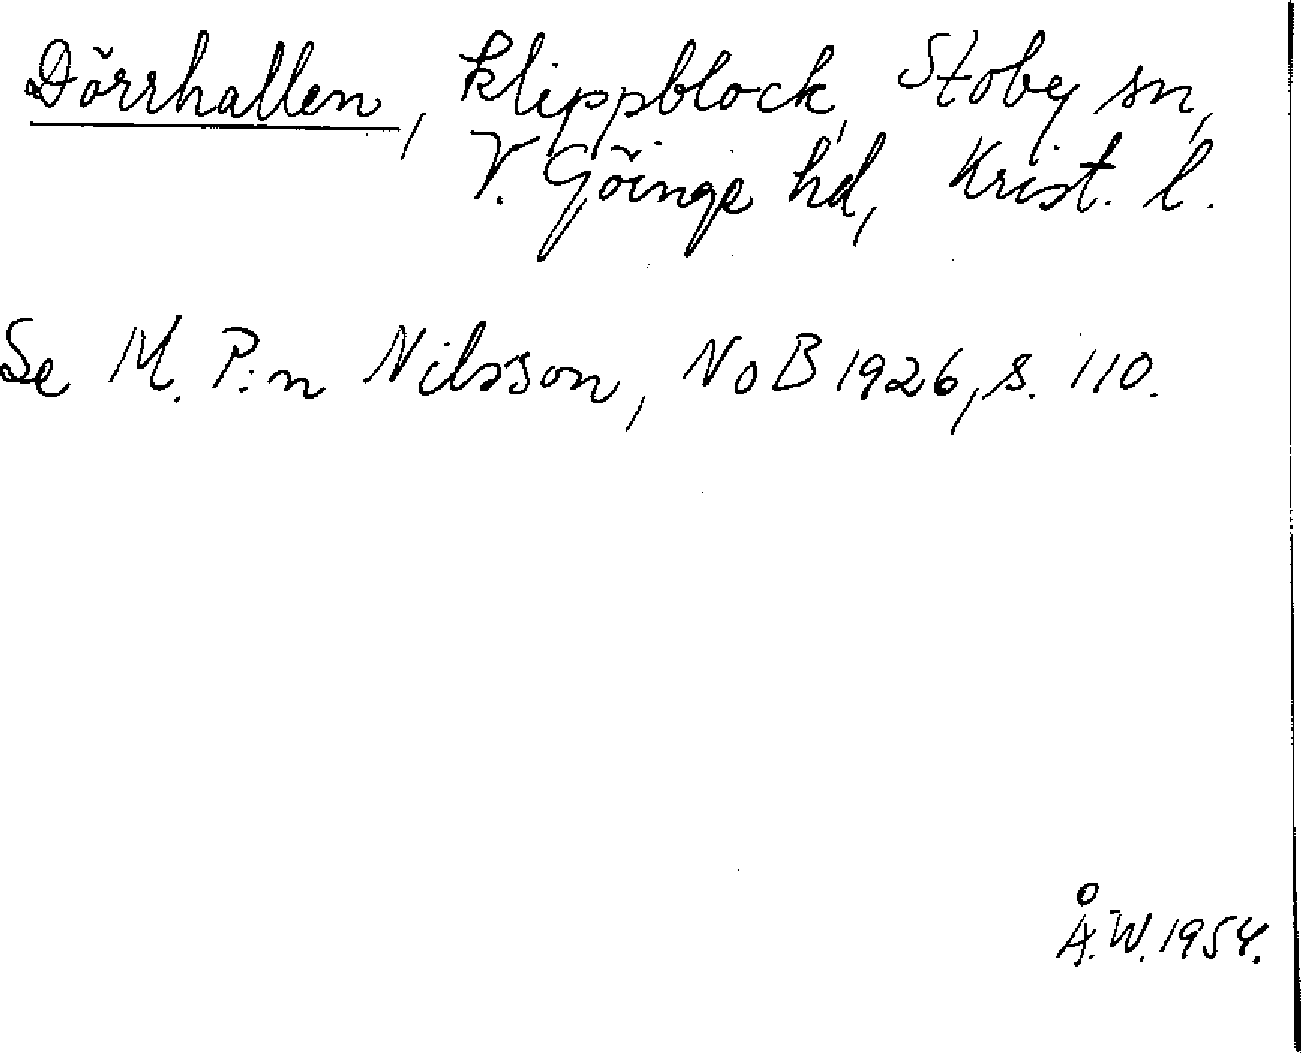 Dörrhallen, klippblock, Stoby sn,
V. Göinge hd, Krist. l.
Se M. P:n Nilsson, NoB 1926, s. 110.
Å.W. 1954.